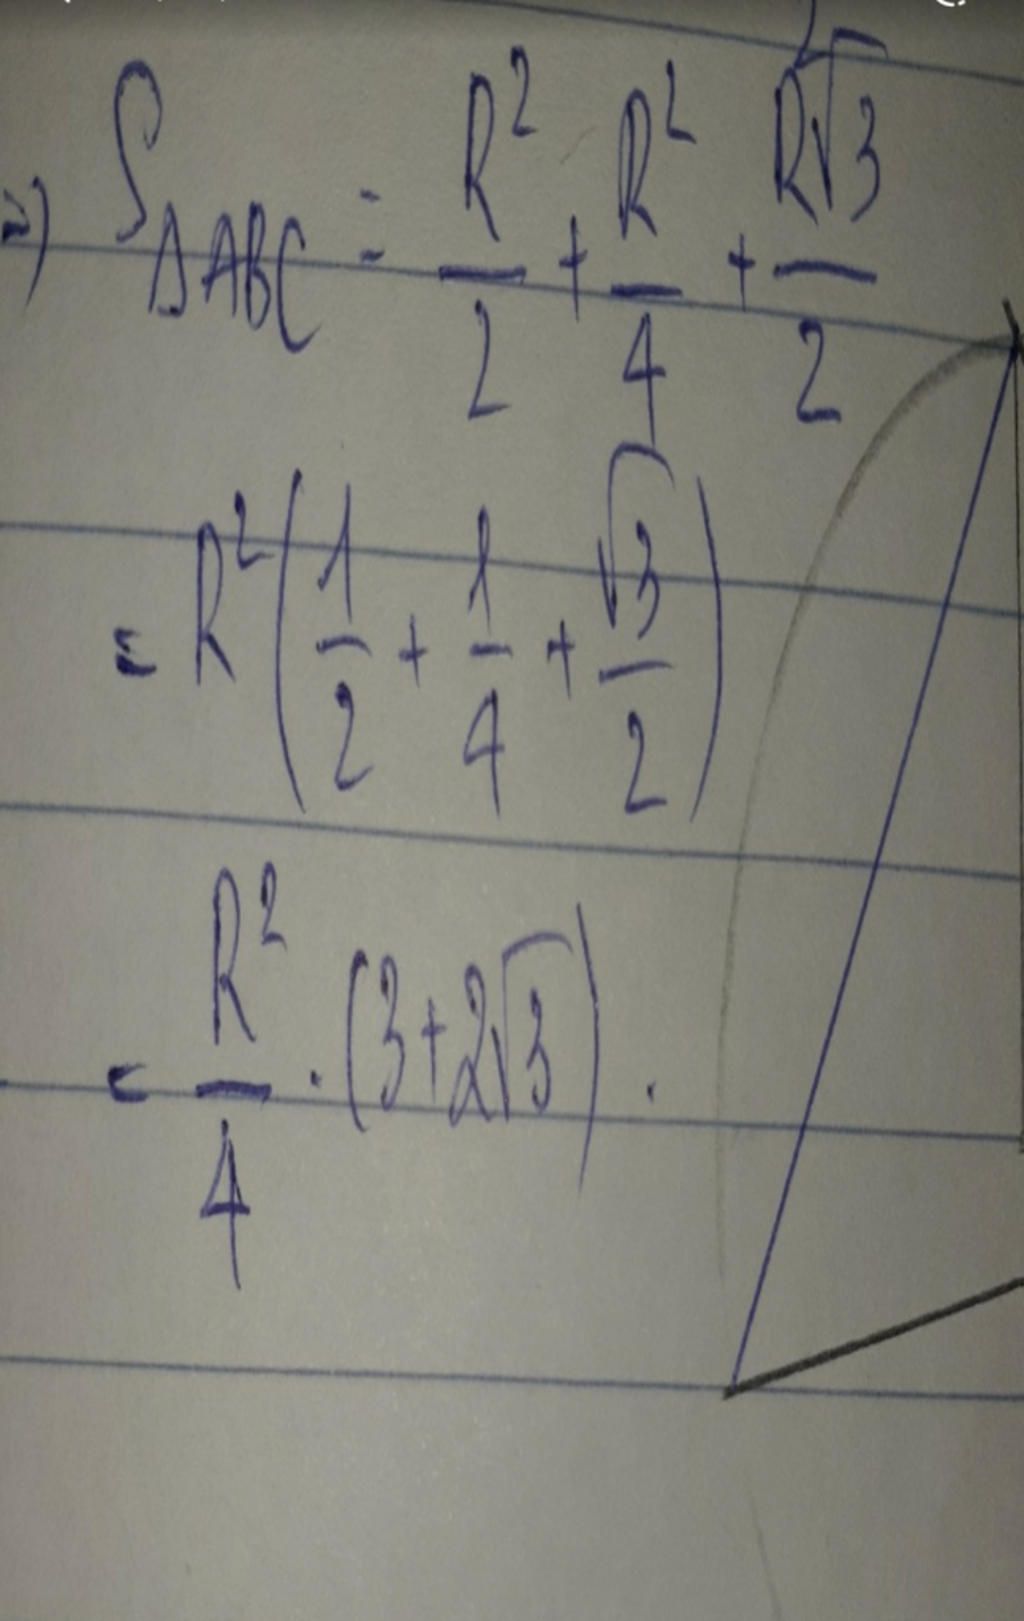 =) S_ΔABC = R²/2 + R²/4 + R²√3/2
= R²(1/2 + 1/4 + √3/2)
= R²/4 · (3+2√3).